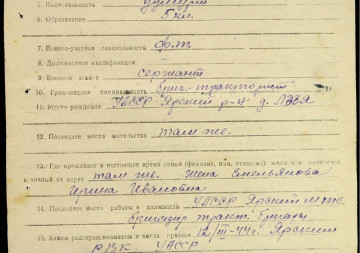 5. Национальность удмурт
6. Образование 5 кл.
7. Военно-учетная специальность
8. Должностная квалификация
9. Военное звание сержант
10. Гражданская специальность бриг-тракторист
11. Место рождения УАССР Ярский р-н д.
12. Последнее место жительства там же.
13. Где проживает в настоящее время семья (фамилия, имя, отчество), жены или родителей
и точный их адрес там же. Жена Емельянова
Ирина Ивановна
14. Последнее место работы и должность УАССР Ярский
бригадир тракт. бригады
15. Каким райгорвоенкоматом и когда призван 12/III-44г. Ярским
РВК. УАССР